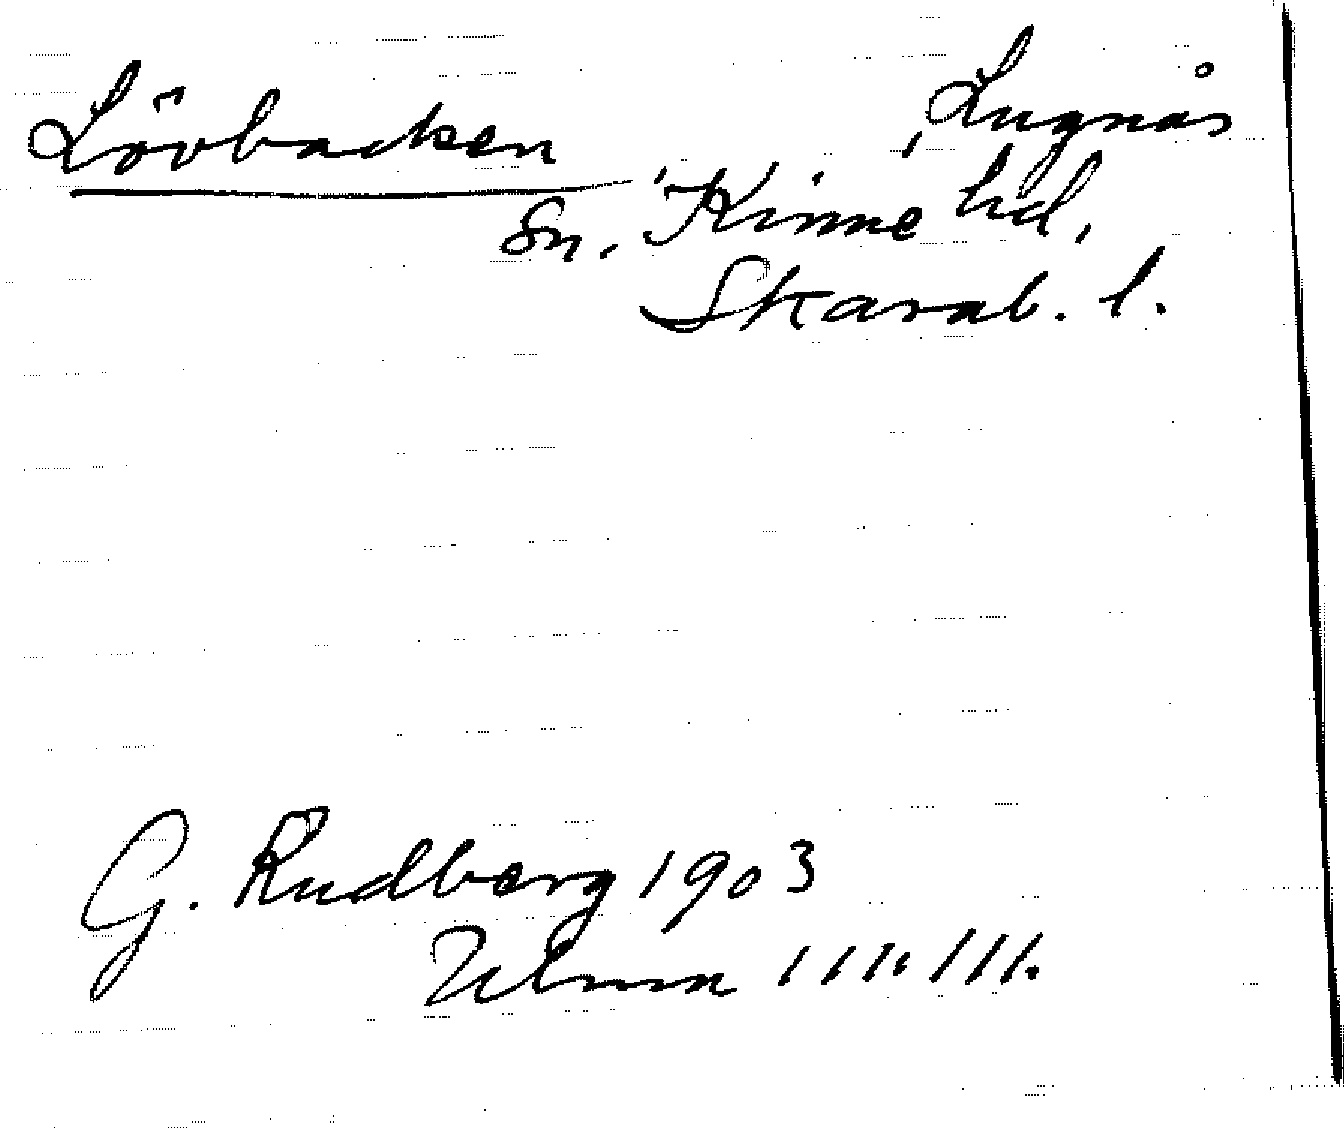 Lövbacken, Lugnås
sn, Kinne hd,
Skarab. l.
G. Rudberg 1903